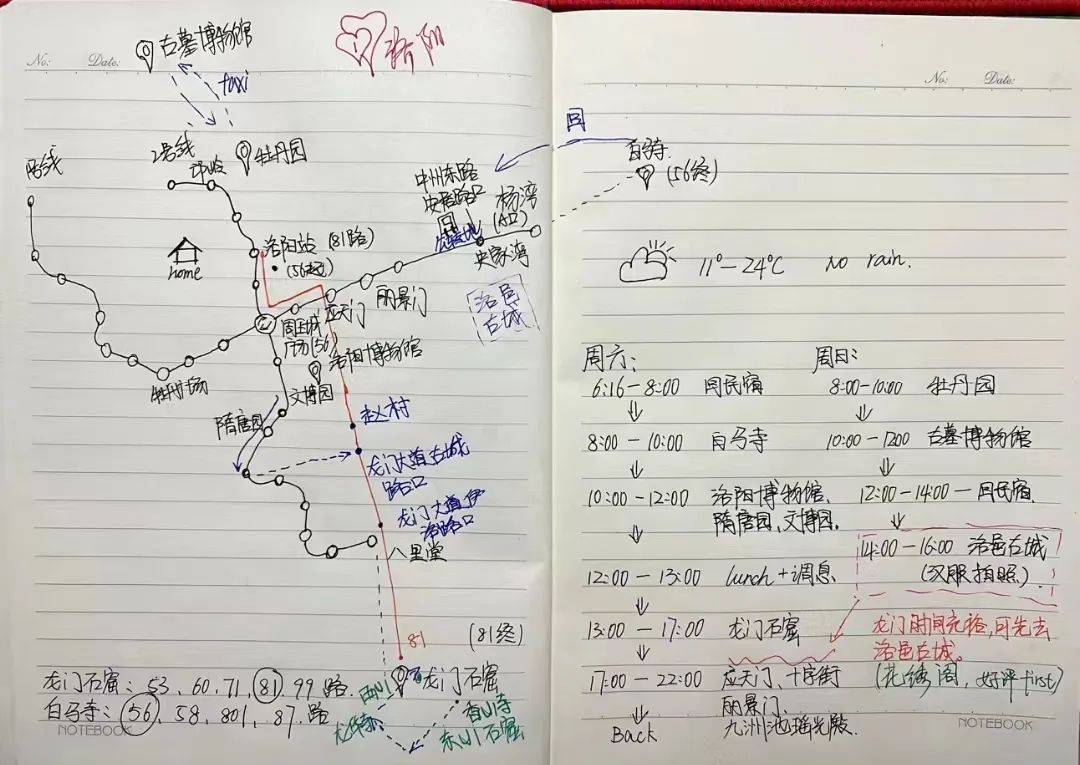 No:
Date:
古墓博物馆
洛阳
taxi
2号线
牡丹园
1号线
home
洛阳站 (81路)
(56起)
中州东路
史家湾
杨湾
(A口)
丽景门
应天门
洛邑
古城
周王城
广场(56)
洛阳博物馆
文博园
牡丹广场
隋唐园
赵村
龙门大道古城
路口
龙门大道伊
洛路口
八里堂
81
(81终)
龙门石窟
西山
香山寺
东山石窟
龙门石窟: 53、60、71、81、99 路.
白马寺: 56、58、801、87、路
NOTEBOOK
No:
Date:
回
白马寺
(56终)
11°-24℃
No rain.
周六:
6:16-8:00 回民宿
8:00-10:00 白马寺
10:00-12:00 洛阳博物馆、
隋唐园、文博园.
12:00-13:00 lunch+调息
13:00-17:00 龙门石窟
17:00-22:00 应天门、十字街
丽景门、
九洲池瑶光殿.
Back
周日:
8:00-10:00 牡丹园
10:00-1200 古墓博物馆
12:00-14:00-回民宿
14:00-16:00 洛邑古城
(汉服拍照)
龙门时间充裕,可先去
洛邑古城。
(花绣阁,好评first)
NOTEBOOK